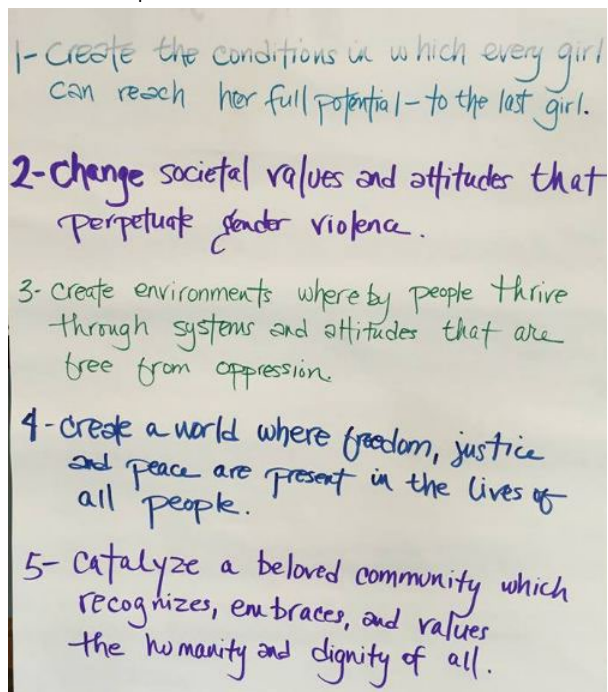 1- Create the conditions in which every girl
can reach her full potential - to the last girl.
2- change societal values and attitudes that
perpetuate gender violence.
3- create environments whereby people thrive
through systems and attitudes that are
free from oppression.
4- create a world where freedom, justice
and peace are present in the lives of
all people.
5- catalyze a beloved community which
recognizes, embraces, and values
the humanity and dignity of all.